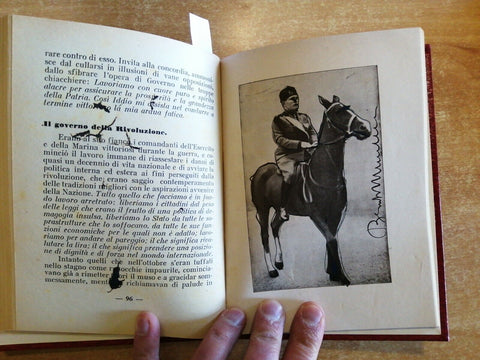 rare contro di esso. Invita alla concordia, ammoni-
sce dal cullarsi in illusioni di vane opposizioni,
dallo sfibrare l'opera di Governo nelle troppe
chiacchiere: Lavoriamo con cuore puro e spirito
alacre per assicurare la prosperità e la grandezza
della Patria. Così Iddio mi assista nel condurre a
termine vittorioso la mia ardua fatica.
Il governo della Rivoluzione.
Erano al suo fianco i comandanti dell'Esercito
e della Marina vittoriosi durante la guerra, e co-
minciò il lavoro immane di riassestare i danni di
quasi un decennio di vita nazionale e di avviare la
politica interna ed estera ai fini perseguiti dalla
rivoluzione, che erano saggio contemperamento
delle tradizioni migliori con le aspirazioni avveniri
della Nazione. Tutto quello che facciamo è in fon-
do lavoro arretrato; liberiamo i cittadini dal peso
delle leggi che erano il frutto di una politica di de-
magogia insulsa, liberiamo lo Stato da tutte le so-
prastrutture che lo soffocano, da tutte le sue fun-
zioni economiche per le quali non è adatto; lavo-
riamo per andare al pareggio; il che significa riva-
lutare la lira; il che significa prendere una posizione
di dignità e di forza nel mondo internazionale.
Intanto quelli che nell'ottobre s'eran tuffati
nello stagno come ranocchie impaurite, comincia-
vano già a rimetter fuori il muso e a gracidar som-
messamente, mentre richiamavan di palude in
— 96 —
Mussolini